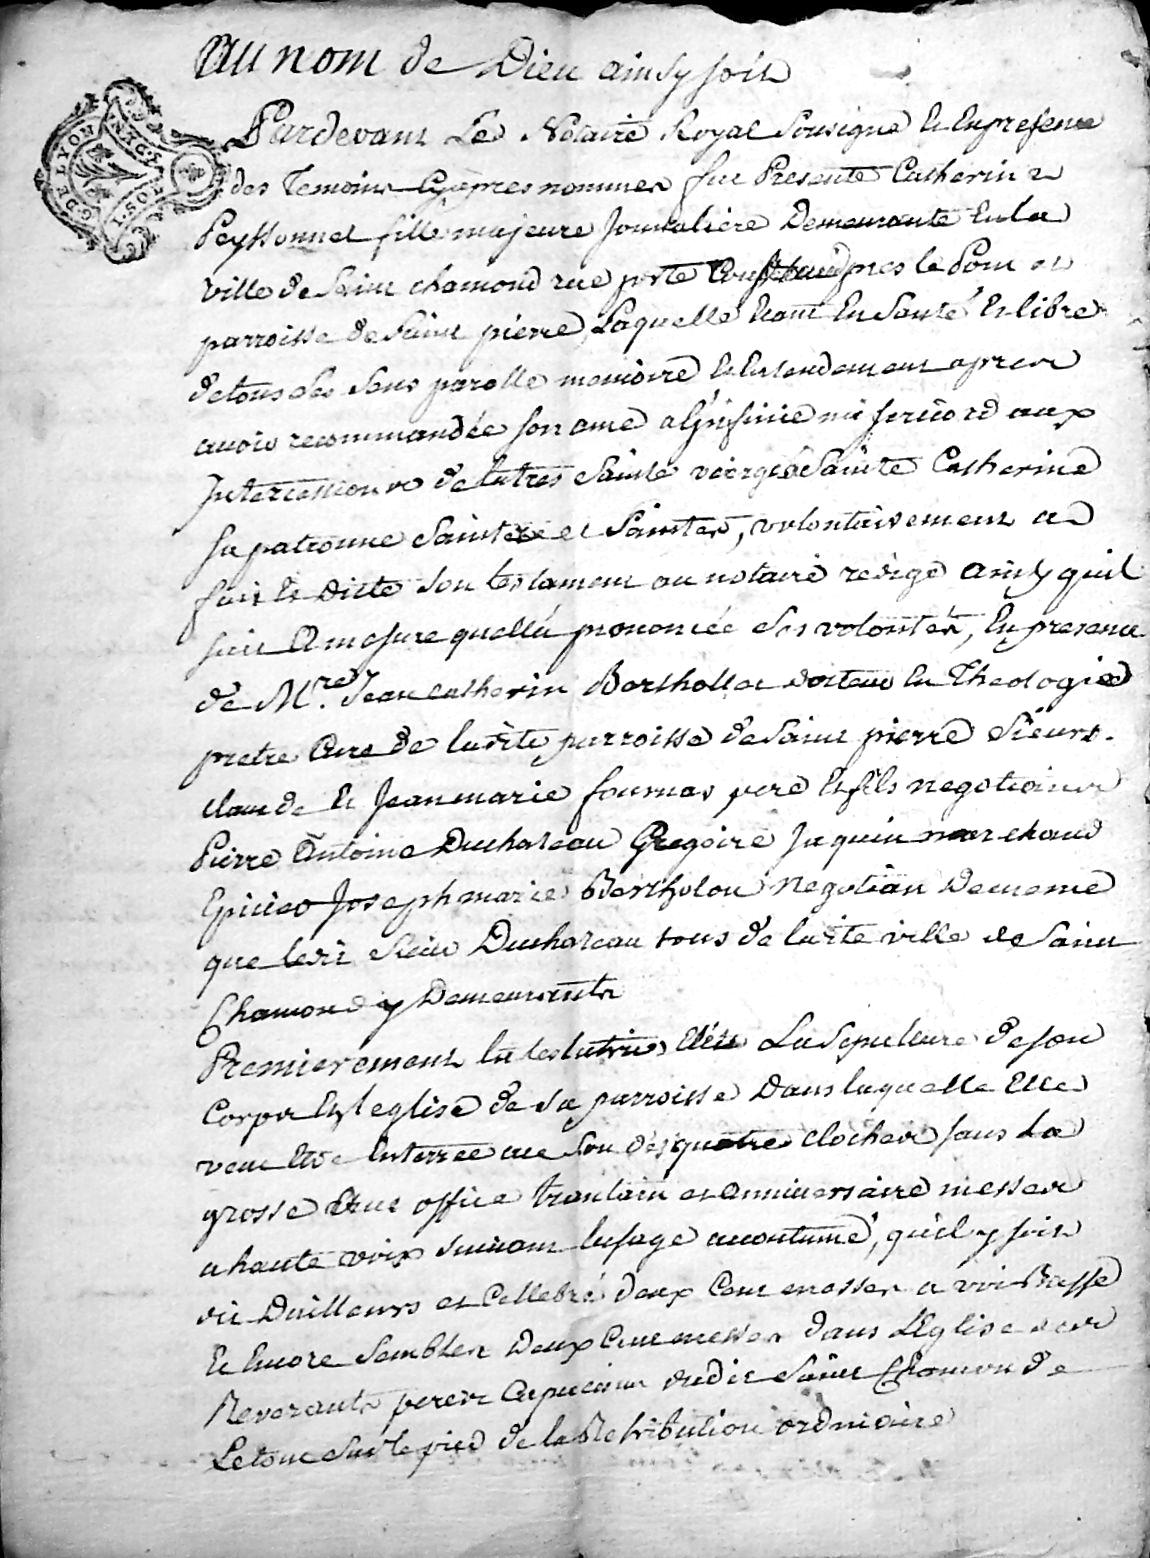 au nom de Dieu ainsy soit
G. DE LYON
Pardevant Le Notaire Royal Sousigné Et Enpresence
des Temoins Cyapres nommes fut Presente Catherine
Peyssonnel fille majeure Journaliere Demeurante Enla
ville de Saint chamond rue porte pres le Pont et
parroisse de Saint pierre, Laquelle Etant En Santé Et libre
detous Ses Sens parolle memoire Et Entendement apres
avoir recommandée son ame a Linfinie misericord aux
Intercessions de latres Sainte vierge Sainte Catherine
sa patronne Saints et Saintes, volontairement a
fait Et Dicté Son testament au notaire redigé ainsy quil
suit amesure quella prononcée Ses volontés, En presence
de M.re Jean catherin Bertholtot docteur En Theologie
pretre Curé de ladite parroisse de Saint pierre Sieurs
claude Et Jeanmarie fournas pere Et fils negotians
Pierre Antoine Duchateau Gregoire Jaquin marchand
Epicier Joseph marie Bertholon Negotian Dememe
que ledit Sieur Duchateau tous de ladite ville de Saint
Chamond y Demeurants
Premierement la testatrice Elit La Sepulture de son
Corps En leglise de Sa parroisse Dans laquelle Elle
veut Etre Enterrée au Son des quatre cloches sans La
grosse Et un office trantain et anniversaire messes
a haute voix suivant lusage accoutumé, quil y soit
dit Dailleurs et Cellebré deux Cent messes a voix Basse
Et Encore Semblen Deux Cent messes dans LEglise des
Reverants peres Capucins dudit Saint Chamond
Letout Sur le pied de la Retribution ordinaire